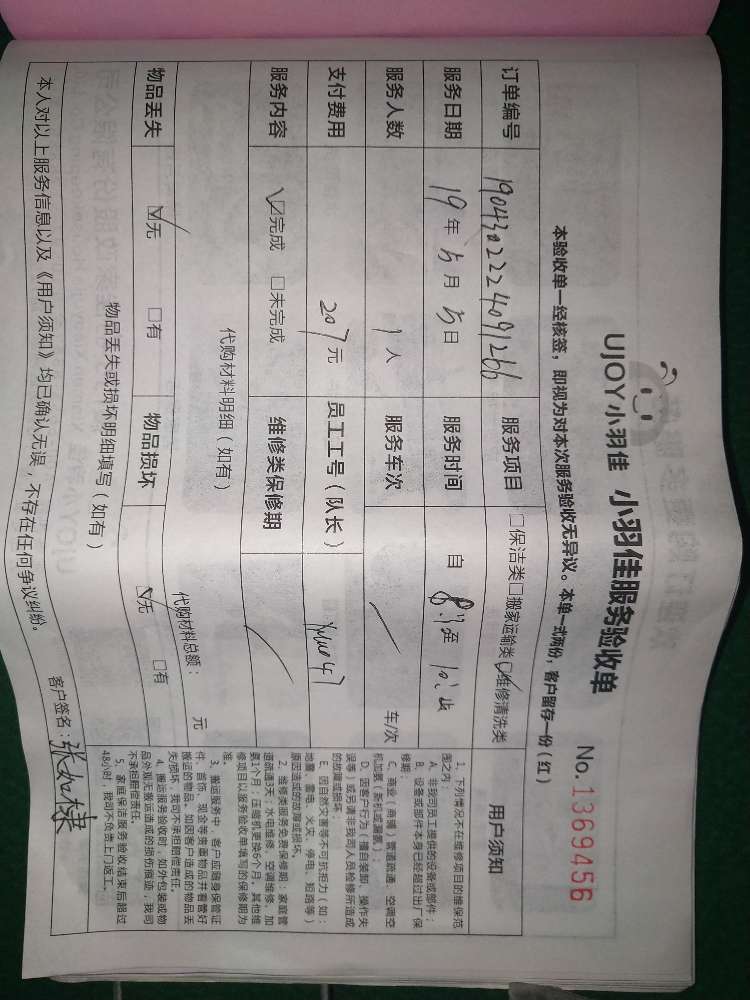 UJOY小羽佳 小羽佳服务验收单
No.1369456
本验收单一经核签，即视为对本次服务验收无异议。本单一式两份，客户留存一份（红）
订单编号 1904302224091266 服务项目 □保洁类□搬家运输类☑维修清洗类
服务日期 19年5月5日 服务时间 自 至
服务人数 1人 服务车次 / 车/次
支付费用 207元 员工工号（队长）
服务内容 ☑完成 □未完成 维修类保修期 /
代购材料明细（如有）
代购材料总额： 元
物品丢失 ☑无 □有 物品损坏 ☑无 □有
物品丢失或损坏明细填写（如有）
本人对以上服务信息以及《用户须知》均已确认无误，不存在任何争议纠纷。
客户签名：
用户须知
1、下列情况不在维修项目的维保范
围之内：
A、非我司员工提供的设备或部件；
B、设备或部件本身已经超过出厂保
修期；
C、商业（商铺）管道疏通、空调空
机加氨（拆机或漏氨）；
D、因客户行为（擅自装卸、操作失
误等）或另请非我司人员检修所造成
的故障或损坏；
E、因自然灾害等不可抗拒力（如：
地震、雷电、火灾、停电、短路等）
原因造成的故障或损坏。
2、维修类服务免费保修期：家庭管
道疏通3天；水电维修、空调维修、加
氨1个月；压缩机更换6个月，其他维
修项目以服务验收单填写的保修期为
准。
3、搬运服务中，客户应健身保管证
件、首饰、现金等贵重物品并看管好
搬运的物品。如因客户造成的物品丢
失损坏，我司不承担赔偿责任。
4、搬运服务验收时，如外包装或物
品外观无搬运造成的损伤痕迹，我司
不承担赔偿责任。
5、家庭保洁服务验收结束后超过
48小时，我司不负责上门返工。